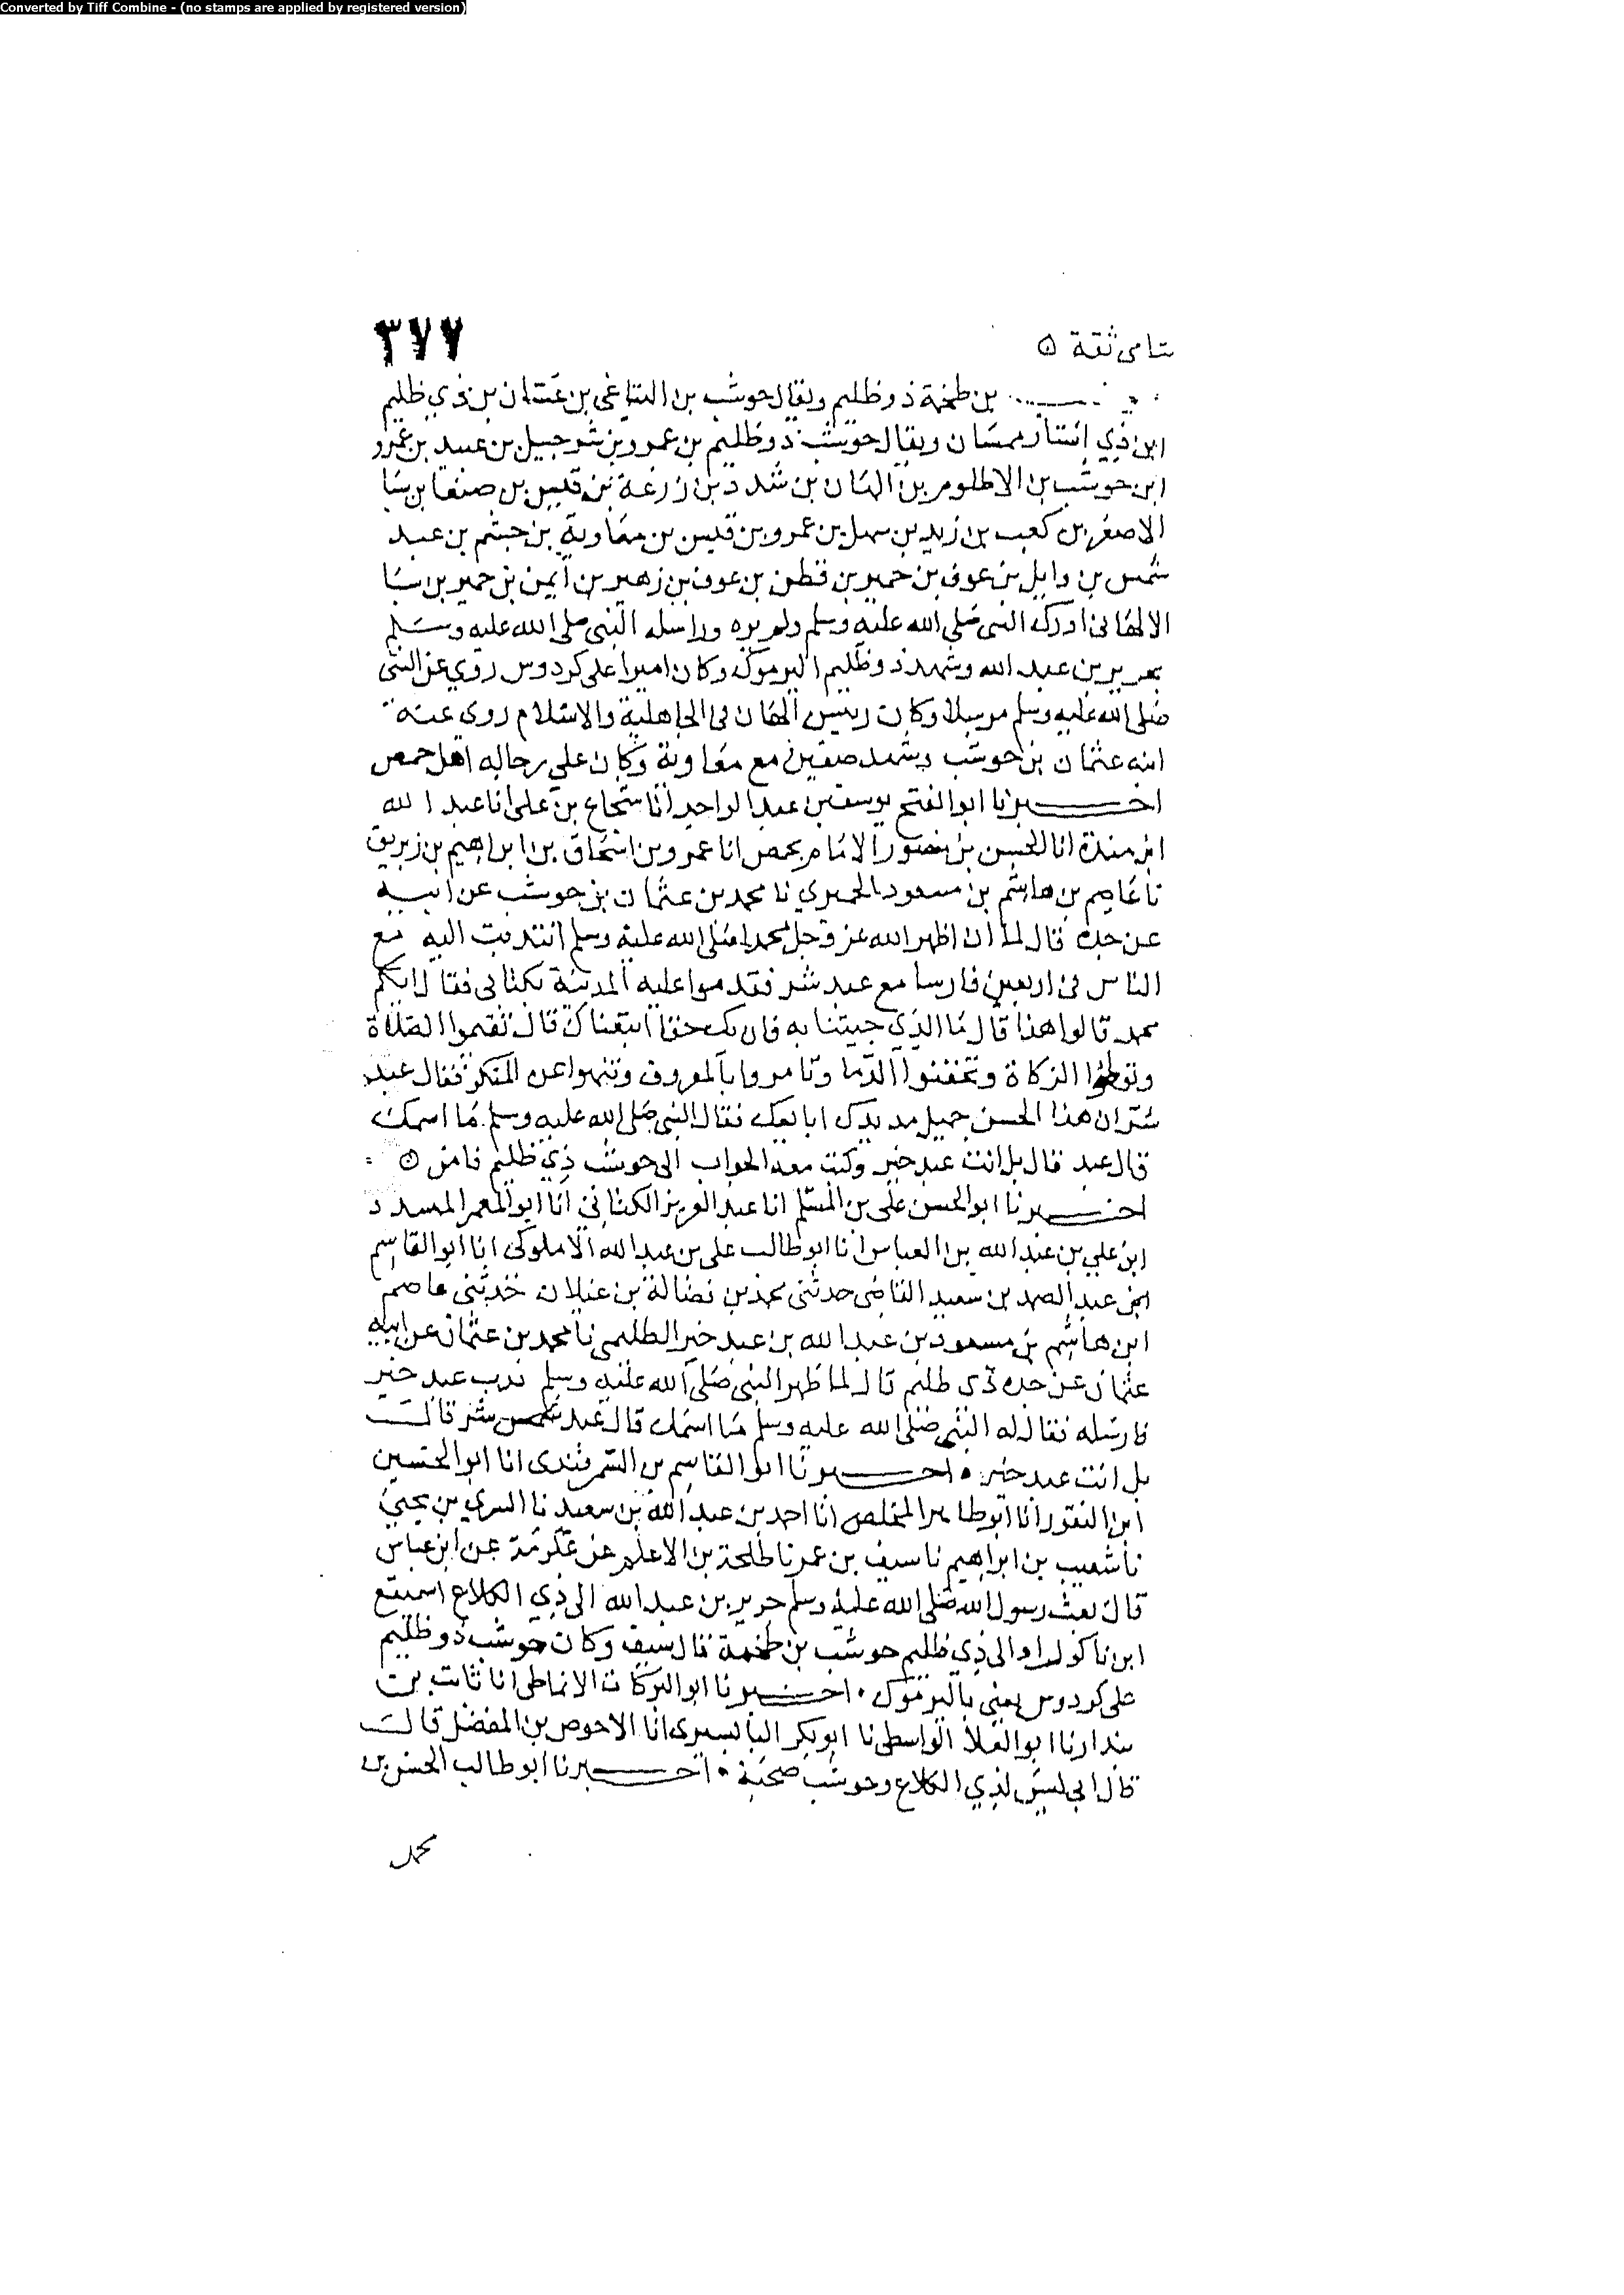 Converted by Tiff Combine - (no stamps are applied by registered version)
٣٧٧
شامي ثقة ه
بن طخمة ذو ظليم ويقال حوشب بن التباعي بن غسان بن ذي ظليم
ابن ذي ويقال حوشب ذو ظليم بن عمرو بن شرحبيل بن عبيد بن عمرو
ابن حوشب بن الاظلوم بن الهان بن شدد بن زرعة بن قيس بن صنعا بن سبا
الاصغر بن كعب بن زيد بن سهل بن عمرو بن قيس بن معاوية بن جشم بن عبد
شمس بن وايل بن عوف بن حمير بن قطن بن عوف بن زهير بن ايمن بن حمير بن سبا
الالهاني ادرك النبي صلى الله عليه وسلم ولم يره وراسله النبي صلى الله عليه وسلم
بجرير بن عبد الله وشهد ذو ظليم اليرموك وكان اميرا على كردوس روي عن النبي
صلى الله عليه وسلم مرسلا وكان رييس الهان في الجاهلية والاسلام روى عنه
ابنه عثمان بن حوشب وشهد صفين مع معاوية وكان على رجاله اهل حمص
اخبرنا ابو الفتح يوسف بن عبد الواحد انا شجاع بن علي انا عبد الله
ابن مندة انا الحسن بن منصور الامام بحمص انا عمرو بن اسحاق بن ابراهيم بن زبريق
نا عاصم بن هاشم بن مسعود الحميري نا محمد بن عثمان بن حوشب عن ابيه
عن جده قال لما ان اظهر الله عز وجل محمدا صلى الله عليه وسلم انتدبت اليه مع
الناس في اربعين فارسا مع عبد شر فقدموا عليه المدينة بكتابي فقال ايكم
محمد قالوا هذا قال ما الذي جيتنا به فان يك حقا اتبعناك قال تقيموا الصلاة
وتعطوا الزكاة وتحقنوا الدما وتامروا بالمعروف وتنهوا عن المنكر فقال عبد
شر ان هذا لحسن جميل مد يدك ابايعك فقال النبي صلى الله عليه وسلم ما اسمك
قال عبد قال بل انت عبد خير وكتب معه الجواب الى حوشب ذي ظليم فامن ه
اخبرنا ابو الحسن علي بن المسلم انا عبد العزيز الكتاني انا ابو المعمر المسدد
ابن علي بن عبد الله بن العباس انا ابو طالب علي بن عبد الله الاملوكي انا ابو القاسم
عبد الصمد بن سعيد القاضي حدثني محمد بن فضالة بن غيلان حدثني عاصم
ابن هاشم بن مسعود بن عبد الله بن عبد خير الظليمي نا محمد بن عثمان عن ابيه
عثمان عن جده ذي ظليم قال لما ظهر النبي صلى الله عليه وسلم ندب عبد خير
فارسله فقال له النبي صلى الله عليه وسلم ما اسمك قال عبد شر قال
بل انت عبد خير اخبرنا ابو القاسم بن السمرقندي انا ابو الحسين
ابن النقور انا ابو طاهر المخلص انا احمد بن عبد الله بن سعيد نا السري بن يحيى
نا شعيب بن ابراهيم نا سيف بن عمر نا طلحة بن الاعلم عن عكرمة عن ابن عباس
قال بعث رسول الله صلى الله عليه وسلم جرير بن عبد الله الى ذي الكلاع اسميفع
ابن ناكور والى ذي ظليم حوشب بن طخمة قال سيف وكان حوشب ذو ظليم
على كردوس يعني باليرموك اخبرنا ابو البركات الانماطي انا ثابت بن
بندار نا ابو العلا الواسطي نا ابو بكر البابسيري انا الاحوص بن المفضل قال
قال ابي ليس لذي الكلاع وحوشب صحبة اخبرنا ابو طالب الحسن بن
محمد